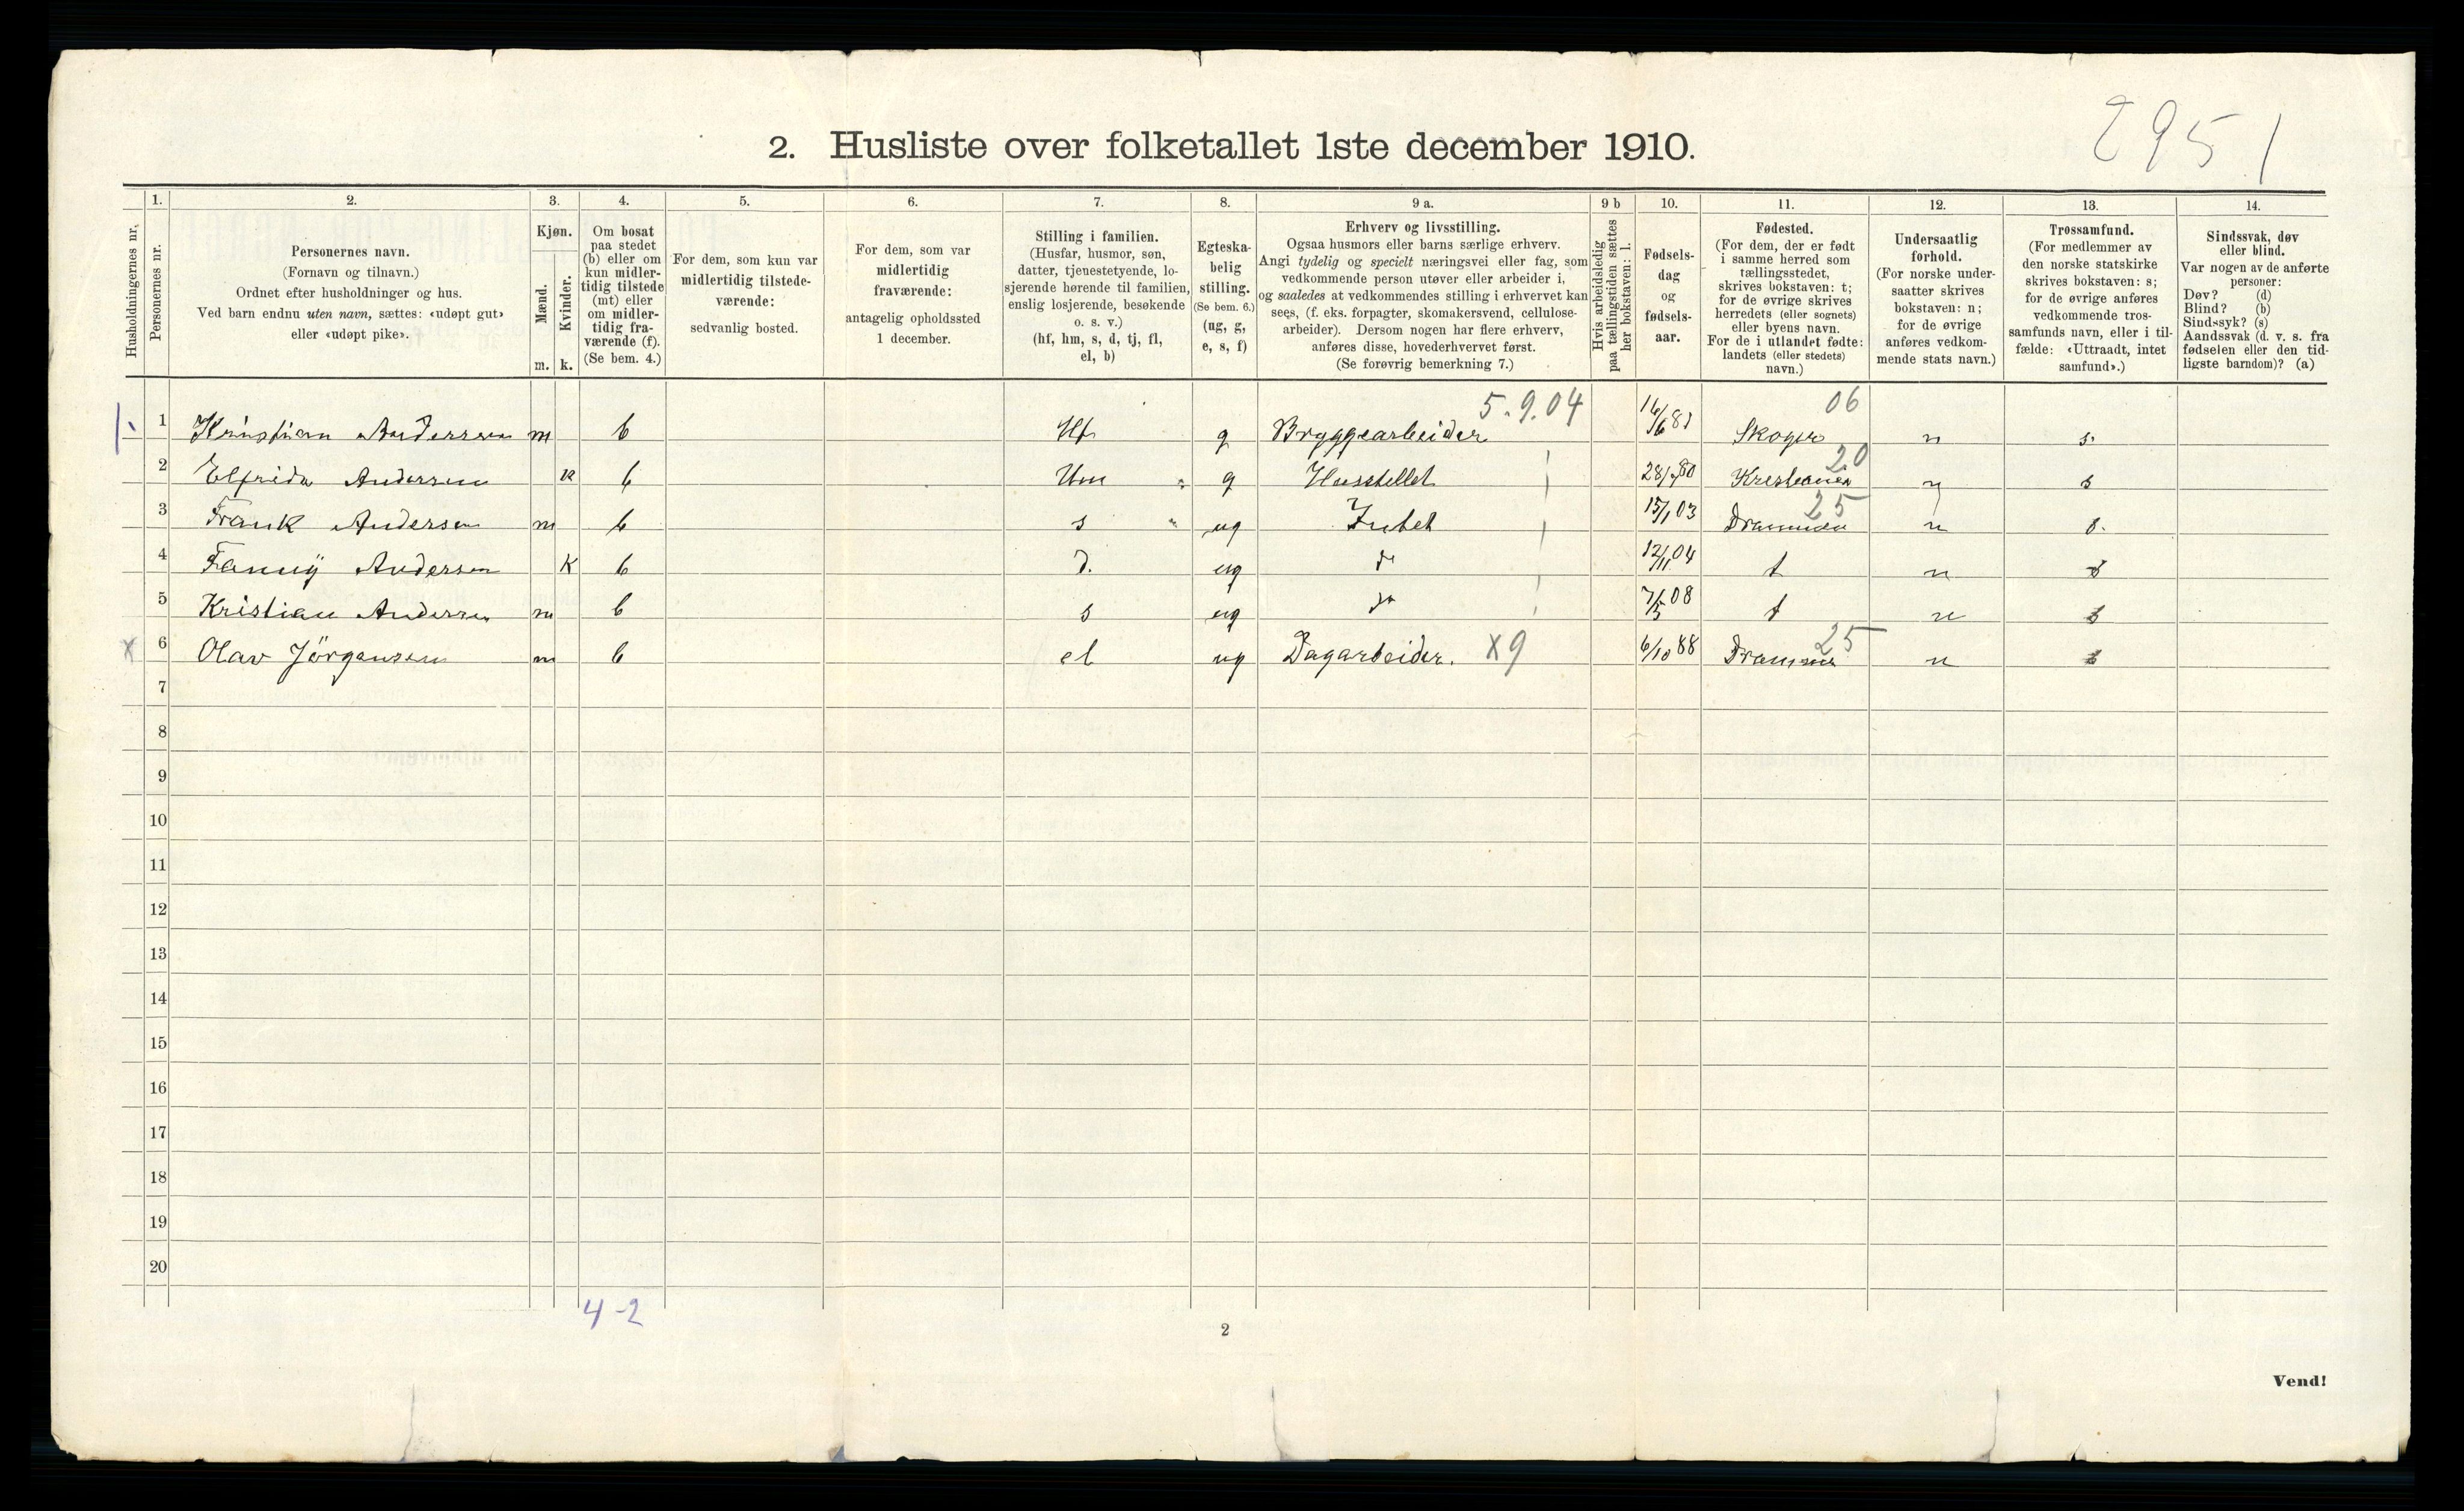 2951
2. Husliste over folketallet 1ste december 1910.
Husholdningernes nr.
1. Personernes nr.
2. Personernes navn. (Fornavn og tilnavn.) Ordnet efter husholdninger og hus. Ved barn endnu uten navn, sættes: «udøpt gut» eller «udøpt pike».
3. Kjøn. Mænd. m. Kvinder. k.
4. Om bosat paa stedet (b) eller om kun midlertidig tilstede (mt) eller om midlertidig fraværende (f). (Se bem. 4.)
5. For dem, som kun var midlertidig tilstedeværende: sedvanlig bosted.
6. For dem, som var midlertidig fraværende: antagelig opholdssted 1 december.
7. Stilling i familien. (Husfar, husmor, søn, datter, tjenestetyende, losjerende hørende til familien, enslig losjerende, besøkende o. s. v.) (hf, hm, s, d, tj, fl, el, b)
8. Egteskabelig stilling. (Se bem. 6.) (ug, g, e, s, f)
9 a. Erhverv og livsstilling. Ogsaa husmors eller barns særlige erhverv. Angi tydelig og specielt næringsvei eller fag, som vedkommende person utøver eller arbeider i, og saaledes at vedkommendes stilling i erhvervet kan sees, (f. eks. forpagter, skomakersvend, cellulosearbeider). Dersom nogen har flere erhverv, anføres disse, hovederhvervet først. (Se forøvrig bemerkning 7.)
9 b Hvis arbeidsledig paa tællingstiden sættes her bokstaven: l.
10. Fødselsdag og fødselsaar.
11. Fødested. (For dem, der er født i samme herred som tællingsstedet, skrives bokstaven: t; for de øvrige skrives herredets (eller sognets) eller byens navn. For de i utlandet fødte: landets (eller stedets) navn.)
12. Undersaatlig forhold. (For norske undersaatter skrives bokstaven: n; for de øvrige anføres vedkommende stats navn.)
13. Trossamfund. (For medlemmer av den norske statskirke skrives bokstaven: s; for de øvrige anføres vedkommende trossamfunds navn, eller i tilfælde: «Uttraadt, intet samfund».)
14. Sindssvak, døv eller blind. Var nogen av de anførte personer: Døv? (d) Blind? (b) Sindssyk? (s) Aandssvak (d. v. s. fra fødselen eller den tidligste barndom)? (a)
1 Kristian Andersen m b Hf g Bryggearbeider 5.9.04 16/6 81 Skoger 06 n s.
2 Elfrida Andersen k b Hm g Husstellet 80 Kristiania 20 n s
3 Frank Andersen m b s ug Intet 15/1 03 Drammen 25 n s.
4 Fanny Andersen K b d. ug 12/11 04 t n s
5 Kristian Andersen m b s ug 7/5 08 t n s
x 6 Olav Jörgensen m b el ug Dagarbeider. X9 6/10 88 Drammen 25 n s
7
8
9
10
11
12
13
14
15
16
17
18
19
20
4-2
2
Vend!